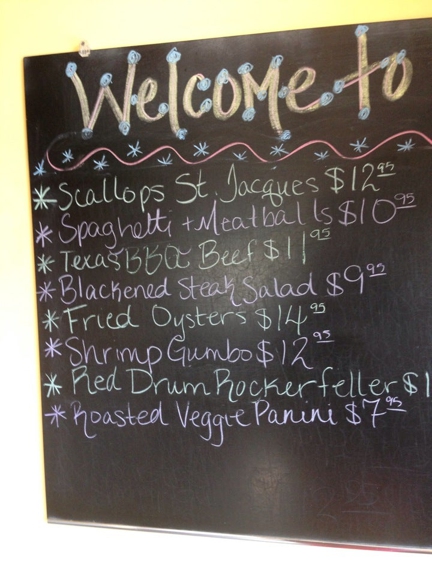 Welcome to
* Scallops St. Jacques $12.95
* Spaghetti + Meatballs $10.95
* Texas BBQ Beef $11.95
* Blackened Steak Salad $9.95
* Fried Oysters $14.95
* Shrimp Gumbo $12.95
* Red Drum Rockerfeller $1
* Roasted Veggie Panini $7.95